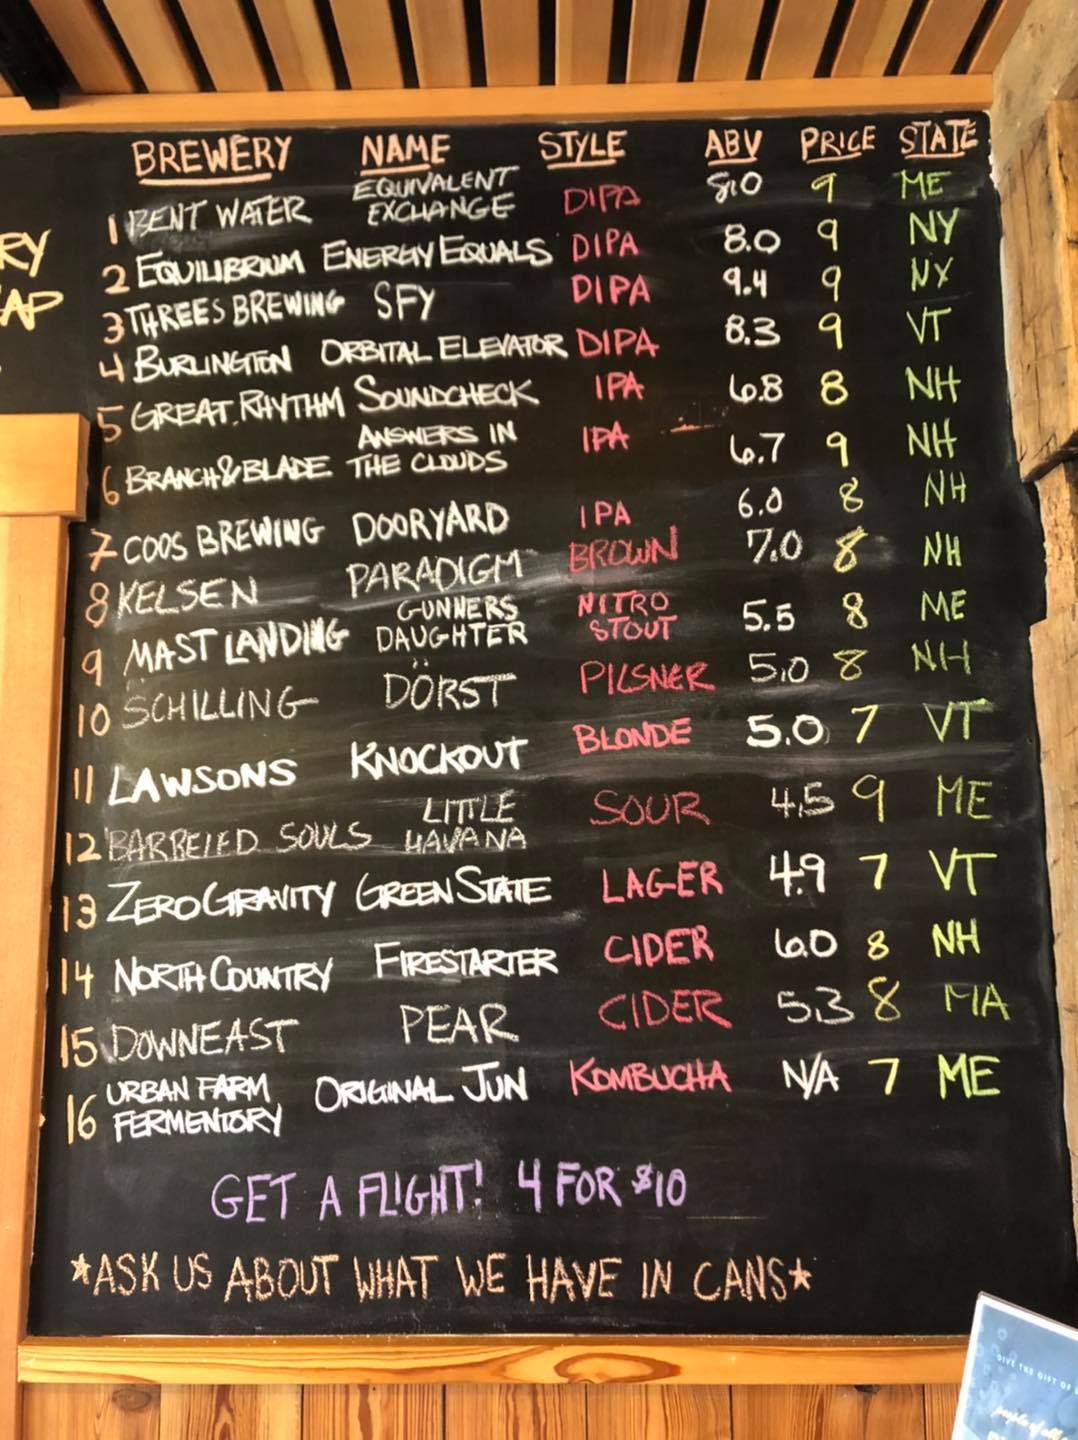 BREWERY NAME STYLE ABV PRICE STATE
1 BENT WATER EQUIVALENT EXCHANGE DIPA 8.0 9 ME
2 EQUILIBRIUM ENERGY EQUALS DIPA 8.0 9 NY
3 THREES BREWING SFY DIPA 9.4 9 NY
4 BURLINGTON ORBITAL ELEVATOR DIPA 8.3 9 VT
5 GREAT RHYTHM SOUNDCHECK IPA 6.8 8 NH
6 BRANCH & BLADE ANSWERS IN THE CLOUDS IPA 6.7 9 NH
7 COOS BREWING DOORYARD IPA 6.0 8 NH
8 KELSEN PARADIGM BROWN 7.0 8 NH
9 MAST LANDING GUNNERS DAUGHTER NITRO STOUT 5.5 8 ME
10 SCHILLING DÖRST PILSNER 5.0 8 NH
11 LAWSONS KNOCKOUT BLONDE 5.0 7 VT
12 BARRELED SOULS LITTLE HAVANA SOUR 4.5 9 ME
13 ZERO GRAVITY GREEN STATE LAGER 4.9 7 VT
14 NORTH COUNTRY FIRESTARTER CIDER 6.0 8 NH
15 DOWNEAST PEAR CIDER 5.3 8 MA
16 URBAN FARM FERMENTORY ORIGINAL JUN KOMBUCHA N/A 7 ME
GET A FLIGHT! 4 FOR $10
*ASK US ABOUT WHAT WE HAVE IN CANS*
GIVE THE GIFT OF